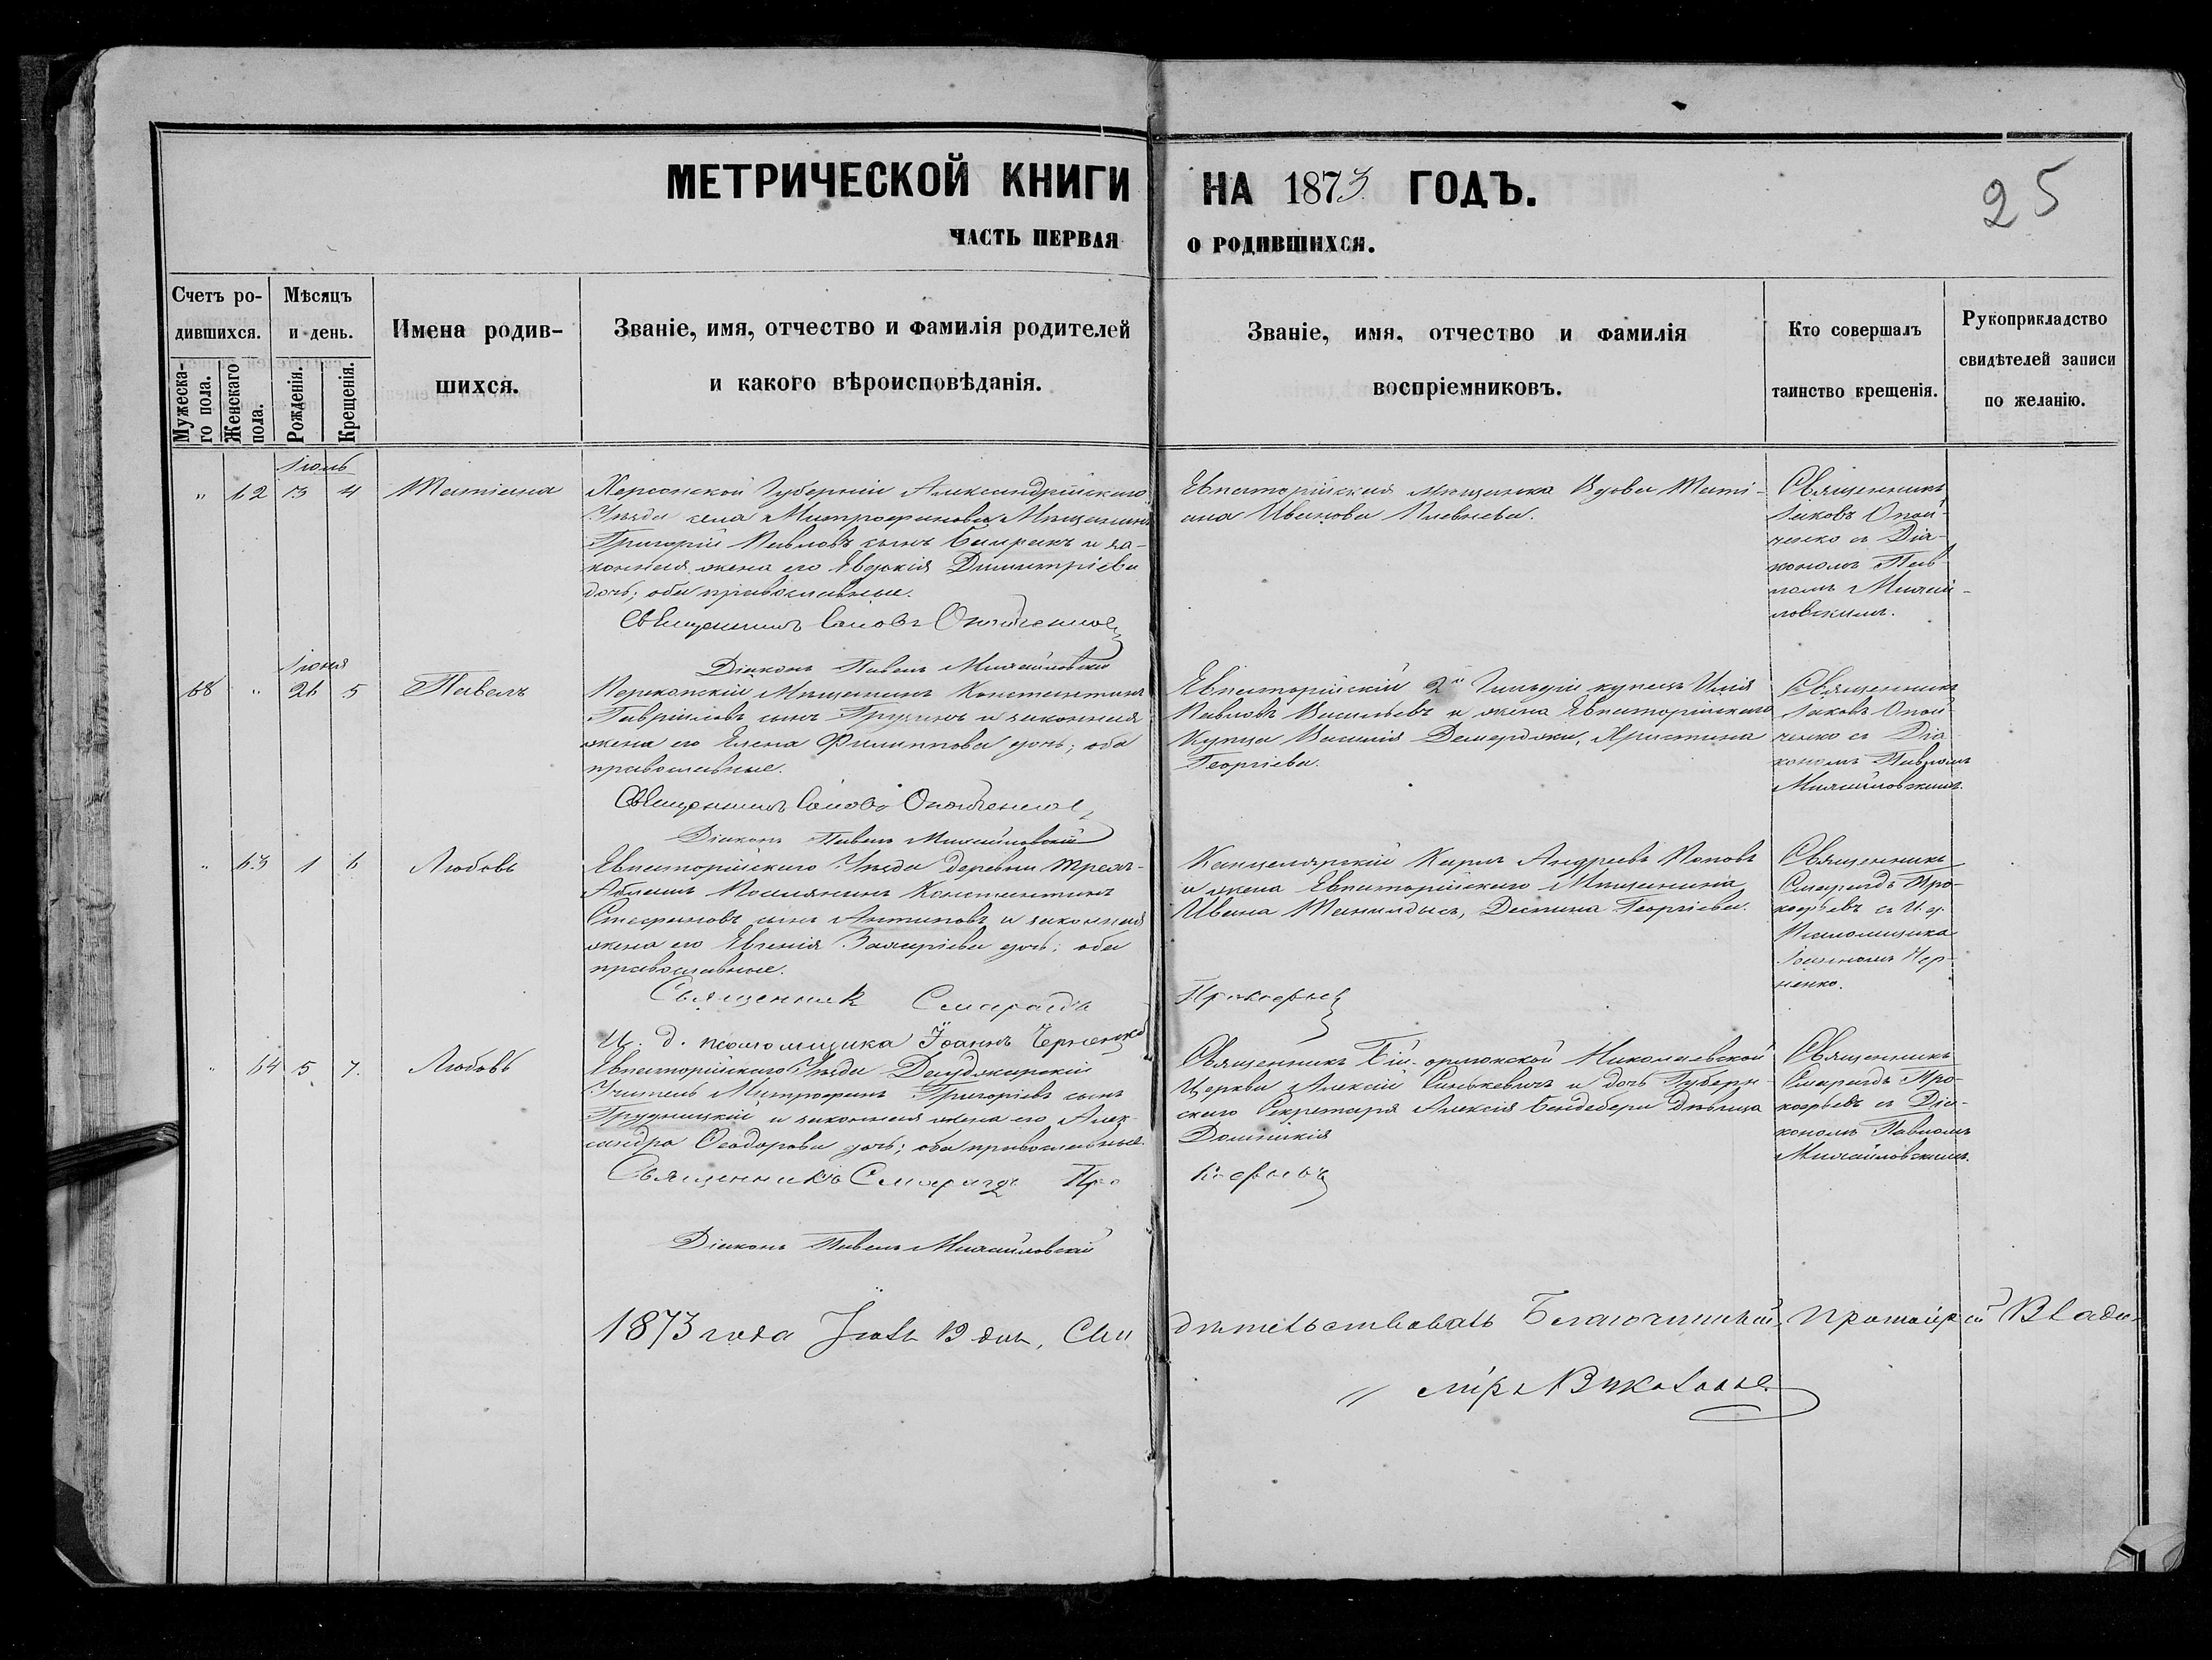 МЕТРИЧЕСКОЙ КНИГИ НА 1873 ГОДЪ.
25
ЧАСТЬ ПЕРВАЯ О РОДИВШИХСЯ.
Счетъ ро-
дившихся.
Мужеска-
го пола.
Женскаго
пола.
Мѣсяцъ
и день.
Рожденія.
Крещенія.
Имена родив-
шихся.
Званіе, имя, отчество и фамилія родителей
и какого вѣроисповѣданія.
Званіе, имя, отчество и фамилія
воспріемниковъ.
Кто совершалъ
таинство крещенія.
Рукоприкладство
свидѣтелей записи
по желанію.
Іюль
" 62 3 4 Татіана
Херсонской Губерніи Александрійскаго
Уѣзда села Митрофанова Мѣщанинъ
Григорій Павловъ сынъ и за-
конная жена его Евдокія Димитріева
дочь; оба православные.
Священникъ Іаковъ Опойченко
Діаконъ Павелъ Михайловскій
Евпаторійская мѣщанка Вдова Тати-
ана Иванова Плевнева.
Священникъ
Іаковъ Опой-
ченко съ Діа-
кономъ Пав-
ломъ Михай-
ловскимъ.
Іюня
68 " 26 5 Павелъ
Перекопскій Мѣщанинъ Константинъ
Гавріиловъ сынъ Грузинъ и законная
жена его Елена Филиппова дочь; оба
православные.
Священникъ Іаковъ Опойченко
Діаконъ Павелъ Михайловскій
Евпаторійскій 2й Гильдіи купецъ Илія
Павловъ Васильевъ и жена Евпаторійскаго
Купца Василія Демерджи, Христина
Георгіева.
Священникъ
Іаковъ Опой-
ченко съ Діа-
кономъ Павломъ
Михайловскимъ.
" 63 1 6 Любовь
Евпаторійскаго Уѣзда деревни Трехъ-
Абламъ Поселянинъ Константинъ
Стефановъ сынъ Антиповъ и законная
жена его Евгенія Захаріева дочь; оба
православные.
Священникъ Смарагдъ Прокофьевъ
И. д. псаломщика Іоаннъ Черненко
Канцелярскій Кирилъ Андреевъ Поповъ
и жена Евпаторійскаго Мѣщанина
Ивана, Деспина Георгіева.
Священникъ
Смарагдъ Про-
кофьевъ съ И. д.
Псаломщика
Іоанномъ Чер-
ненко.
" 64 5 7. Любовь
Евпаторійскаго Уѣзда
Учитель Митрофанъ Григоріевъ сынъ
Грудницкій и законная жена его Алек-
сандра Ѳеодорова дочь; оба православные.
Священникъ Смарагдъ Прокофьевъ
Діаконъ Павелъ Михайловскій
Священникъ Біи-орлюкской Николаевской
Церкви Алексій Синькевичъ и дочь Губерн-
скаго Секретаря Алексія Бендебери дѣвица
Домникія
Священникъ
Смарагдъ Про-
кофьевъ съ Діа-
кономъ Павломъ
Михайловскимъ.
1873 года Іюль 19 дня, Свидѣтельствовалъ Благочинный, Протоіерей Влади-
міръ